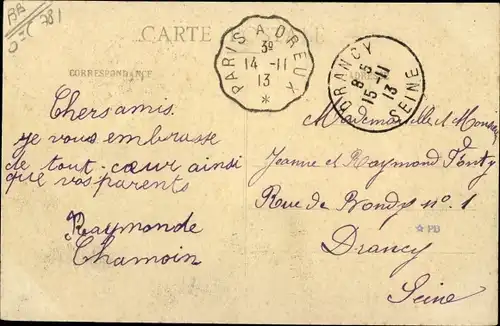 BB
O-C 781
CARTE POSTALE
CORRESPONDANCE
ADRESSE
PARIS A DREUX
3º
14 -11
13
*
DRANCY
8-5
15-11
13
SEINE
Chers amis.
Je vous embrasse
de tout-cœur ainsi
que vos parents
Raymonde
Chamoin
Mademoiselle et Monsieur
Jeanne et Raymond Fonty
Rue de Bondy nº. 1
Drancy
Seine
PD